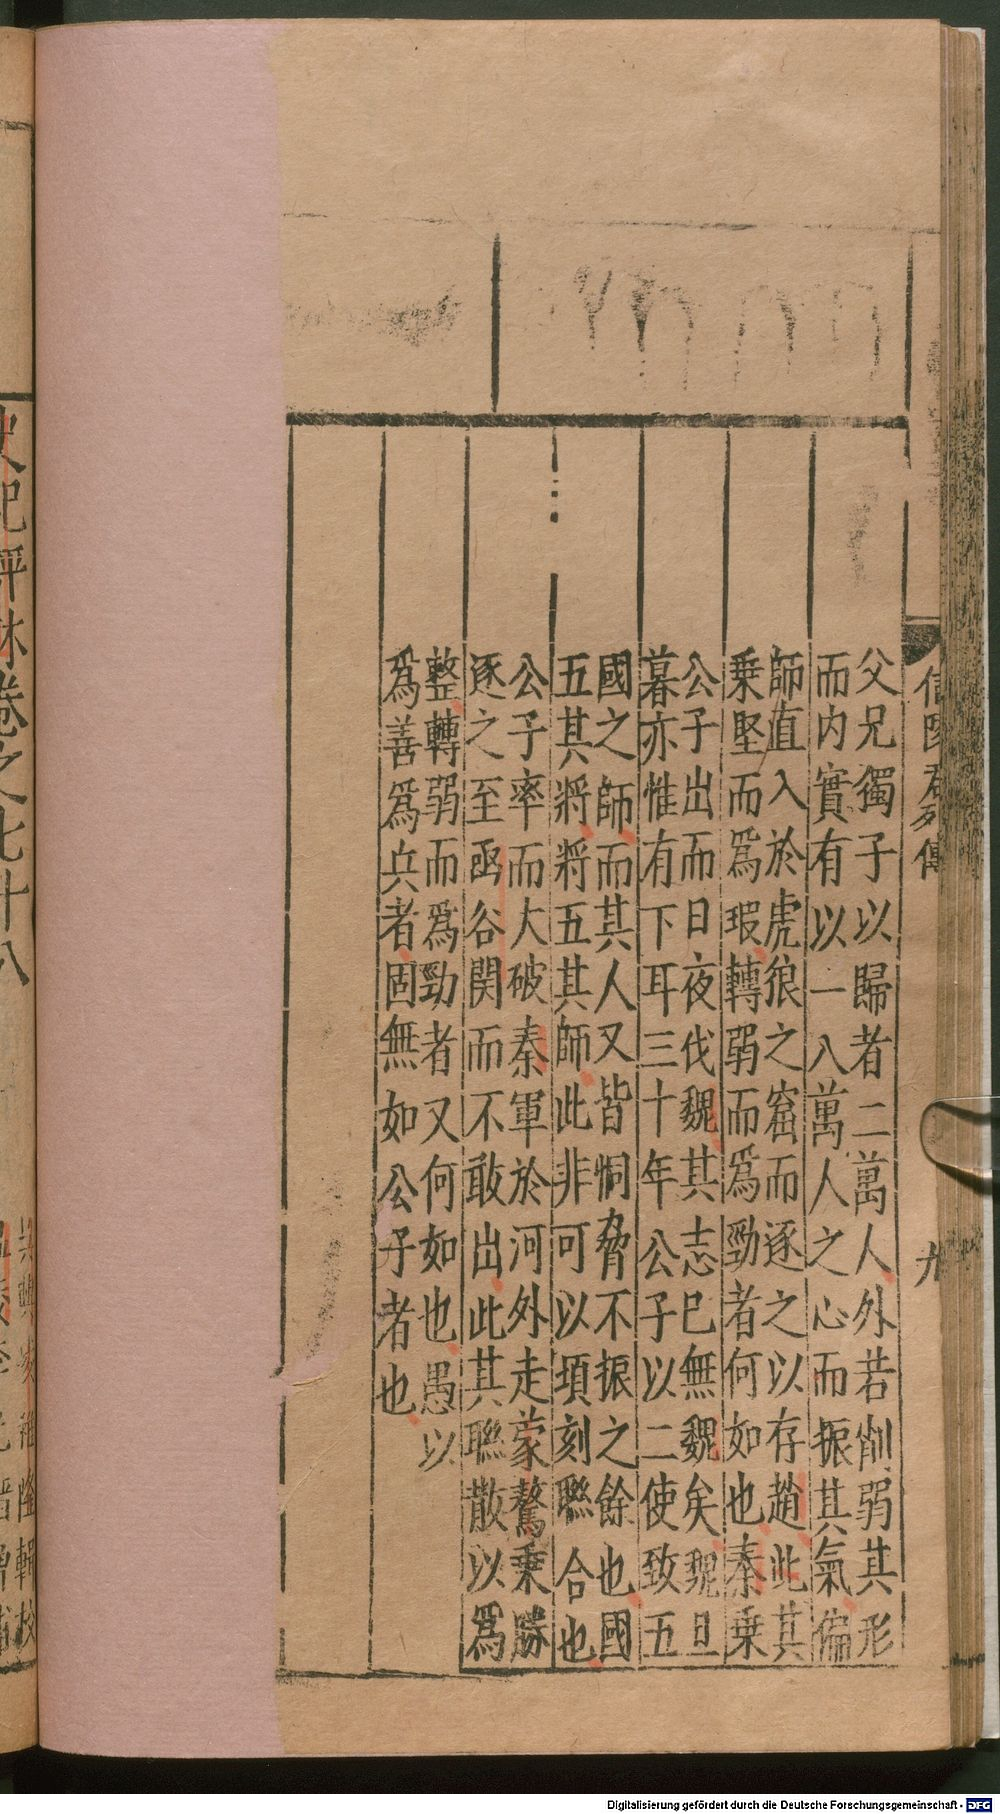 信陵君列傳
九
父兄獨子以歸者二萬人外若削弱其形
而内實有以一八萬人之心而振其氣偏
師直入於虎狼之窟而逐之以存趙此其
乗堅而爲瑕轉弱而爲勁者何如也秦乗
公子出而日夜伐魏其志已無魏矣魏旦
暮亦惟有下耳三十年公子以二使致五
國之師而其人又皆恫脅不振之餘也國
五其將將五其師此非可以頃刻聮合也
公子率而大破秦軍於河外走蒙驁乗勝
逐之至函谷関而不敢出此其聮散以爲
整轉弱而爲勁者又何如也愚以
爲善爲兵者固無如公子者也
史記評林卷之七十八
吳興凌稚隆輯校
Digitalisierung gefördert durch die Deutsche Forschungsgemeinschaft - DFG